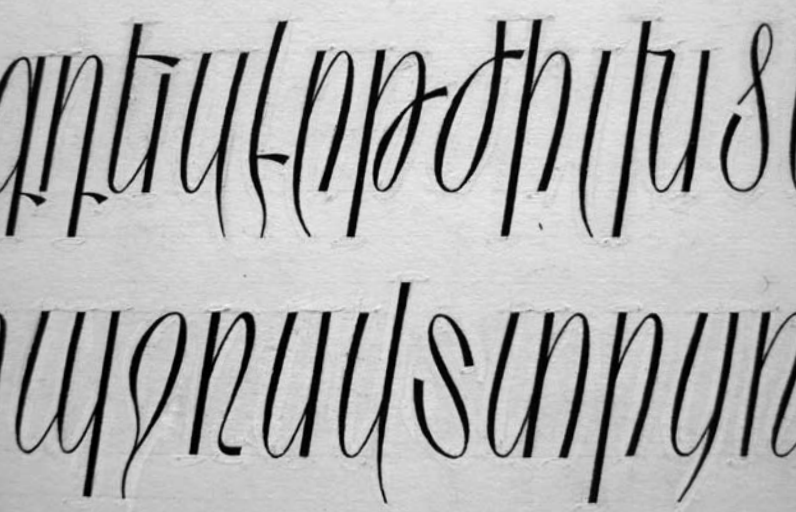 գդեզէըթժիլխծ
պջռսվտրց